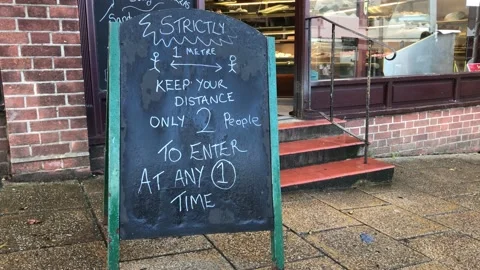 STRICTLY
1 METRE
KEEP YOUR
DISTANCE
ONLY 2 People
TO ENTER
AT ANY 1
TIME